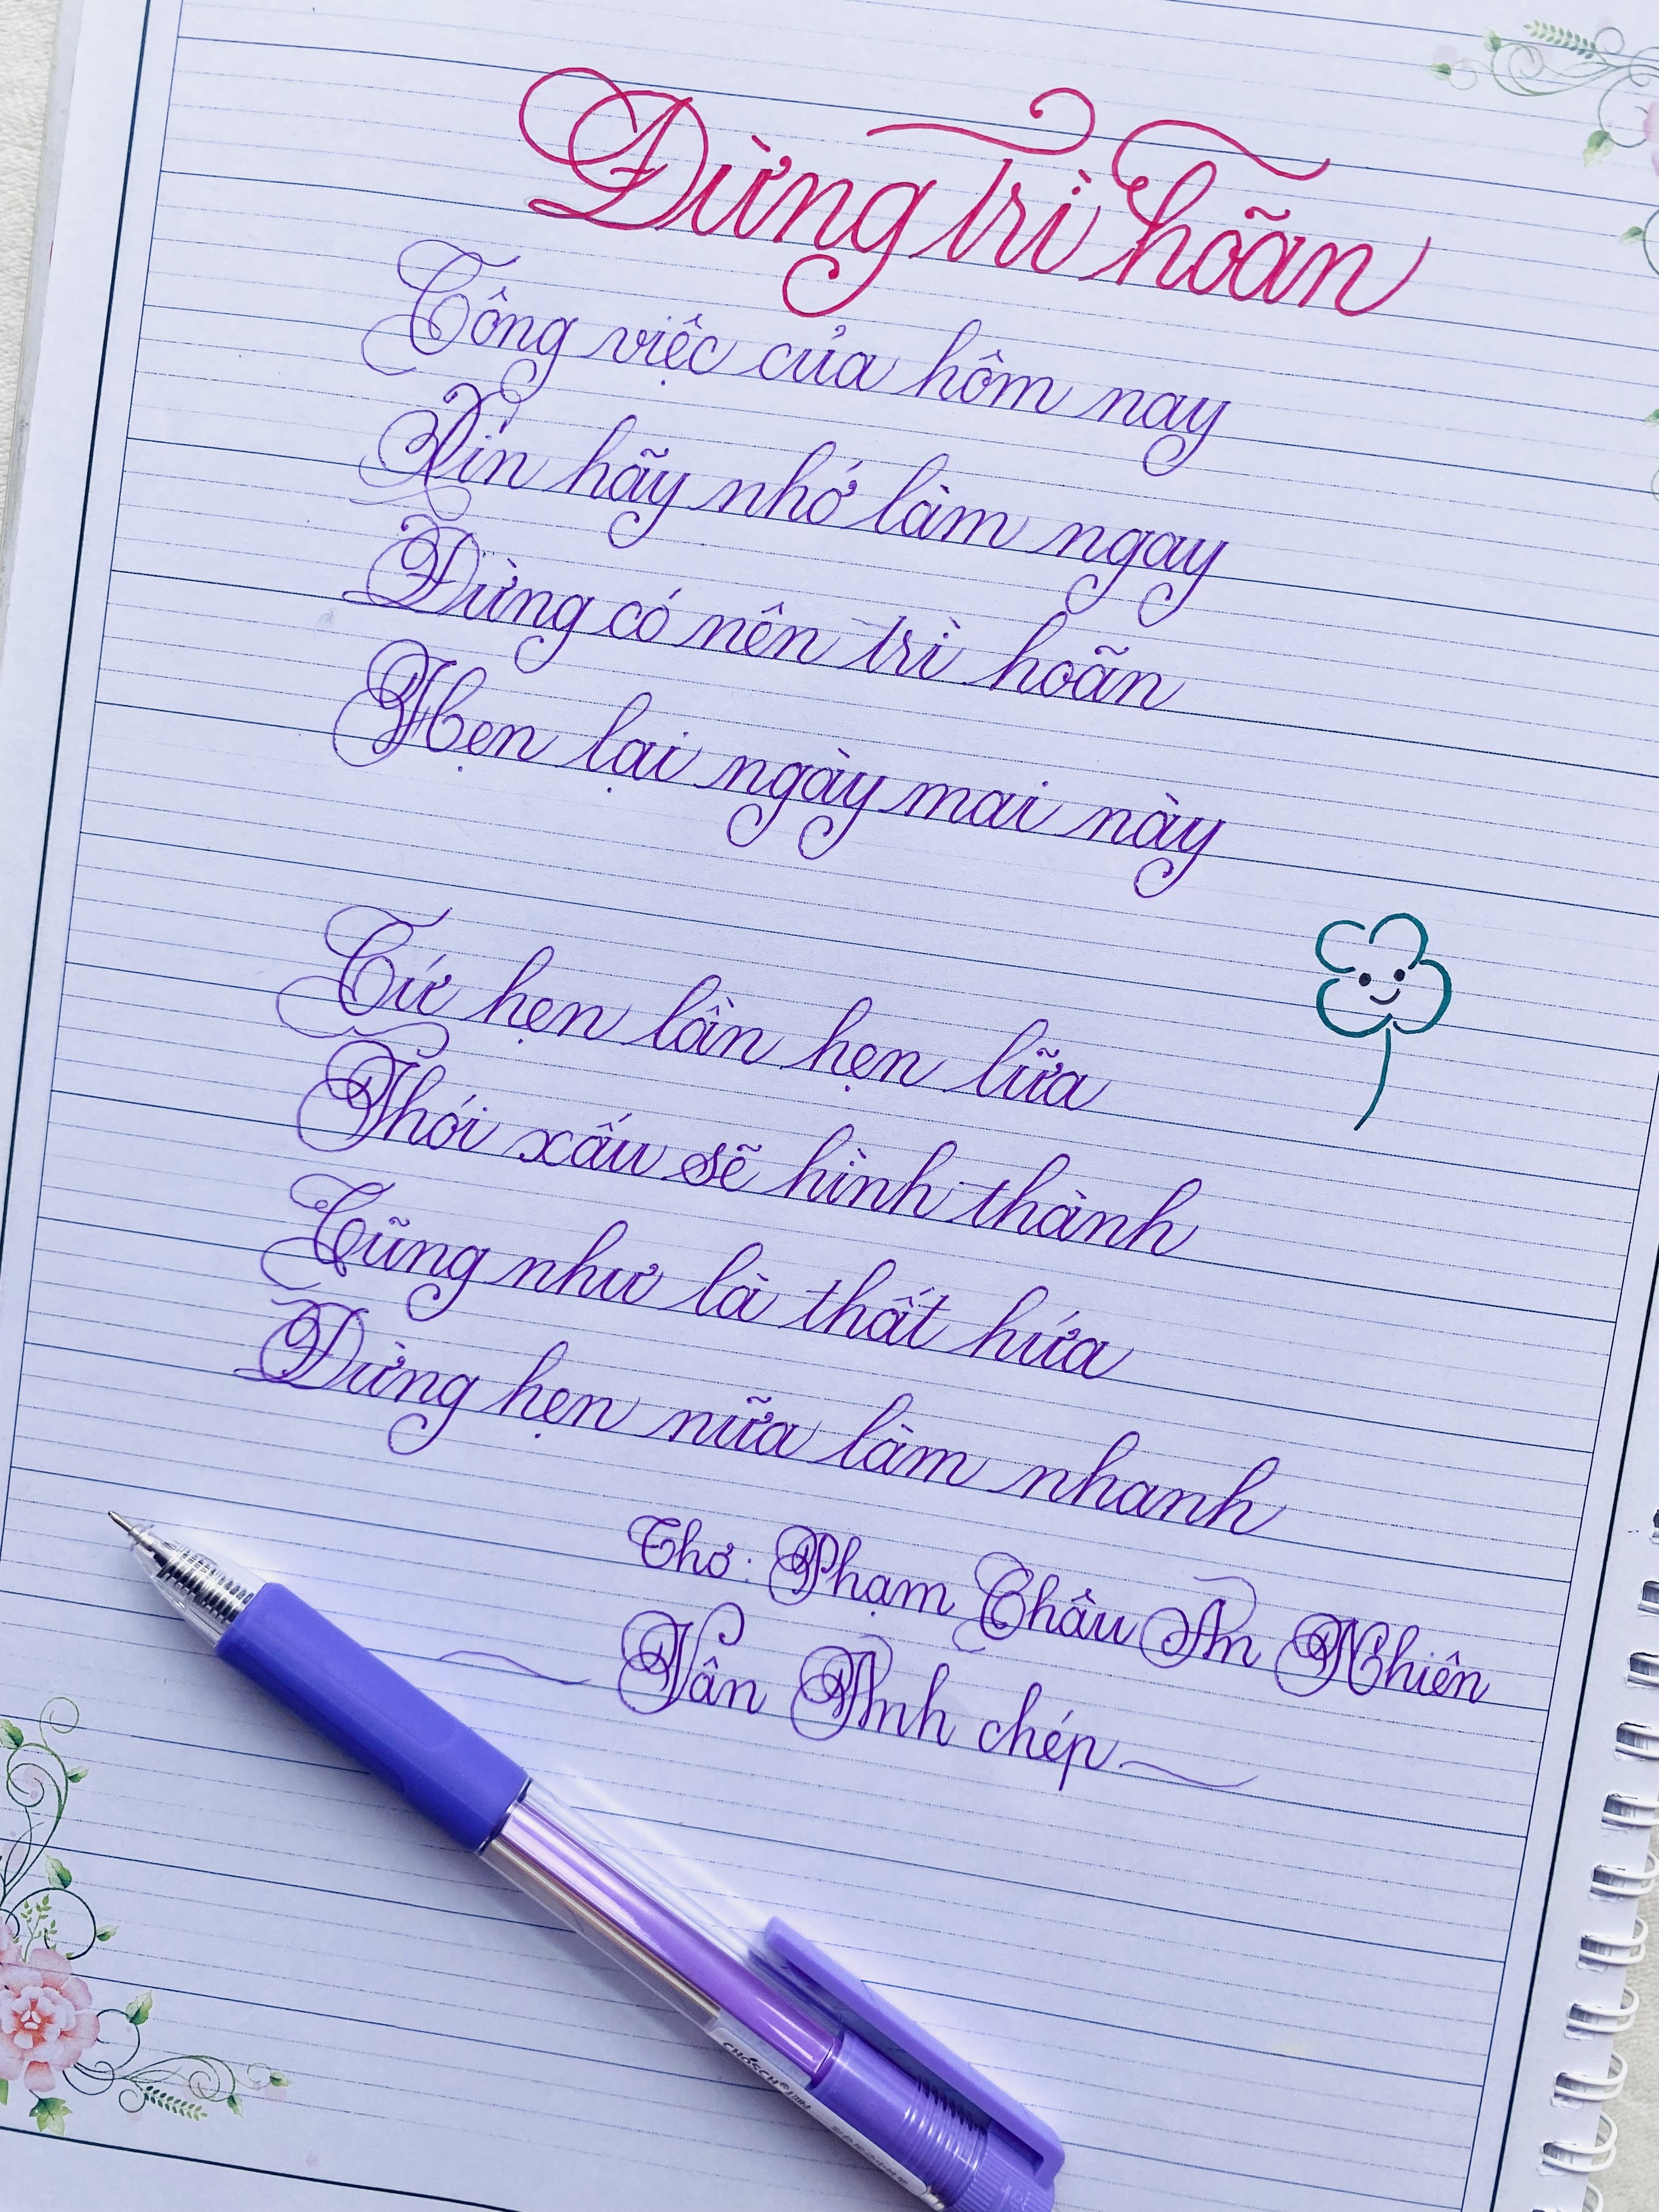 Đừng trì hoãn
Công việc của hôm nay
Xin hãy nhớ làm ngay
Đừng có nên trì hoãn
Hẹn lại ngày mai này
Cứ hẹn lần hẹn lữa
Thói xấu sẽ hình thành
Cũng như là thất hứa
Đừng hẹn nữa làm nhanh
Thơ: Phạm Châu An Nhiên
Vân Anh chép